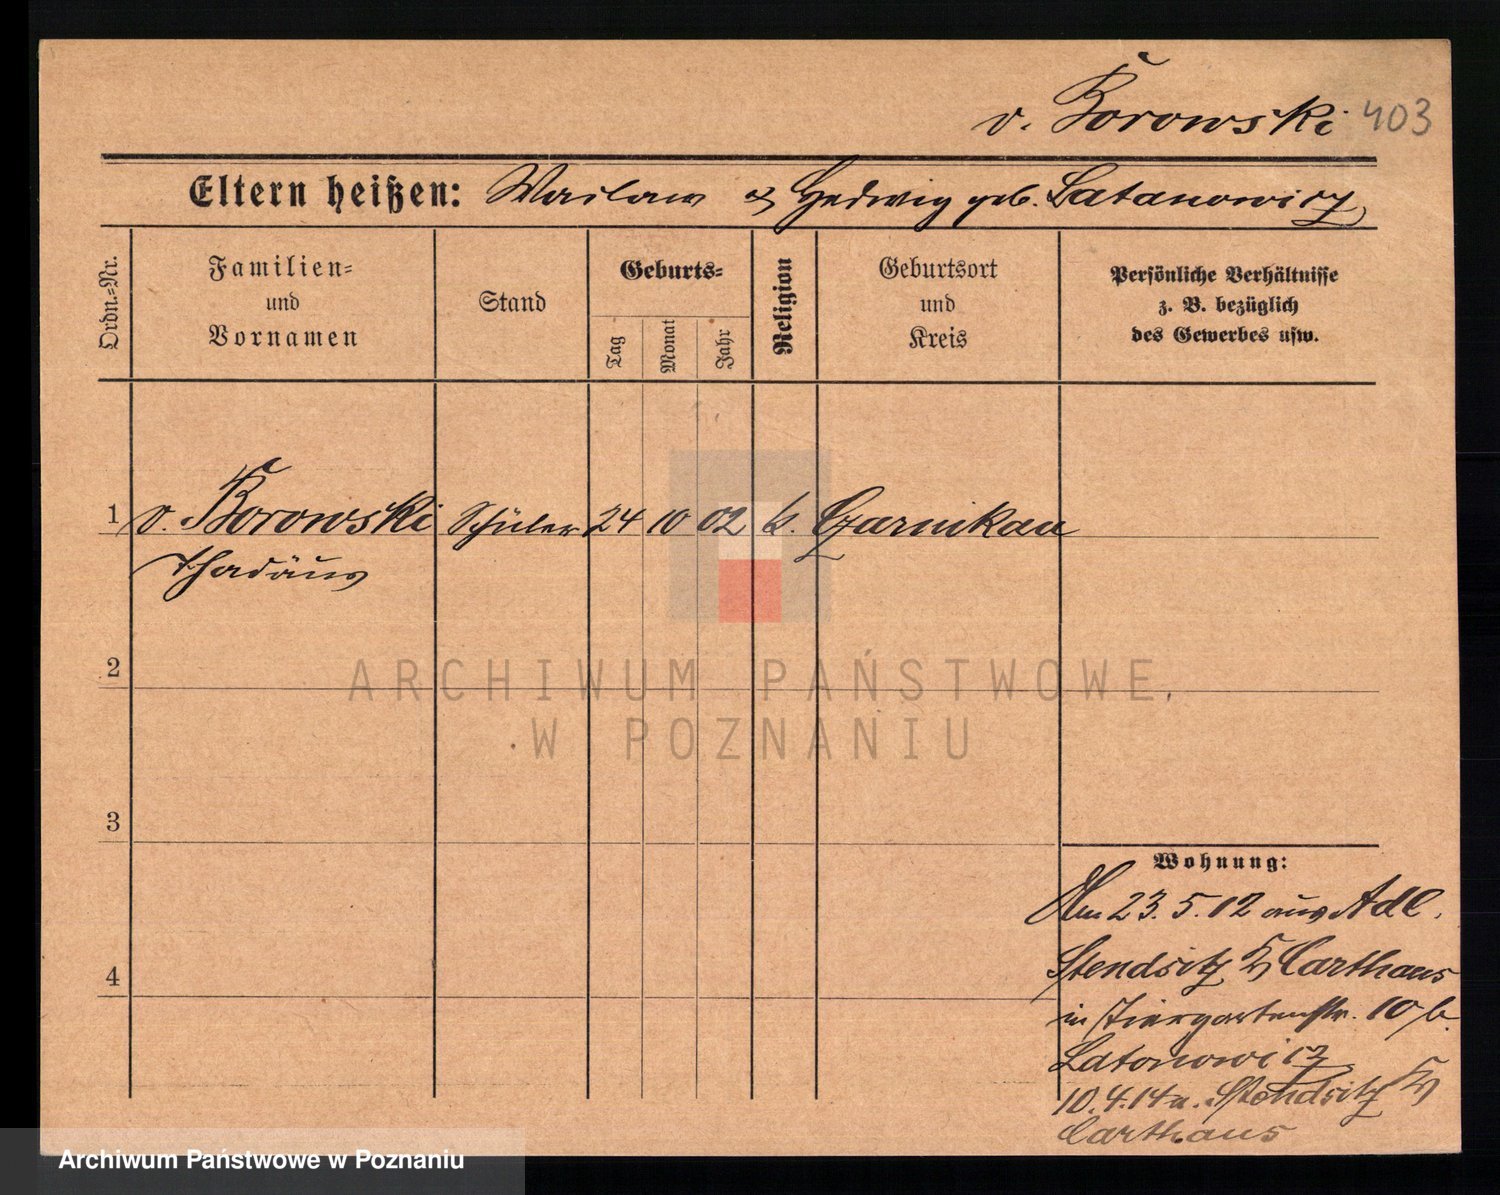 v. Borowski 403
Eltern heißen: Waclaw & Hedwig geb. Latanowicz
Ordn.=Nr.
Familien=
und
Vornamen
Stand
Geburts=
Tag
Monat
Jahr
Religion
Geburtsort
und
Kreis
Persönliche Verhältnisse
z. B. bezüglich
des Gewerbes usw.
1 v. Borowski Schüler 24 10 02 k. Czarnikau
Thadäus
2
ARCHIWUM PAŃSTWOWE
W POZNANIU
3
Wohnung:
Am 23. 5. 12 aus Adl.
Stendsitz Kr Carthaus
4
in Tiergartenstr. 10 b.
Latonowicz
10. 4. 14 n. Stendsitz Kr
Carthaus
Archiwum Państwowe w Poznaniu